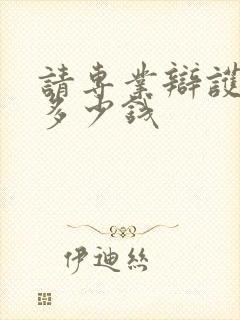 請專業辯護
多少錢
伊迪絲